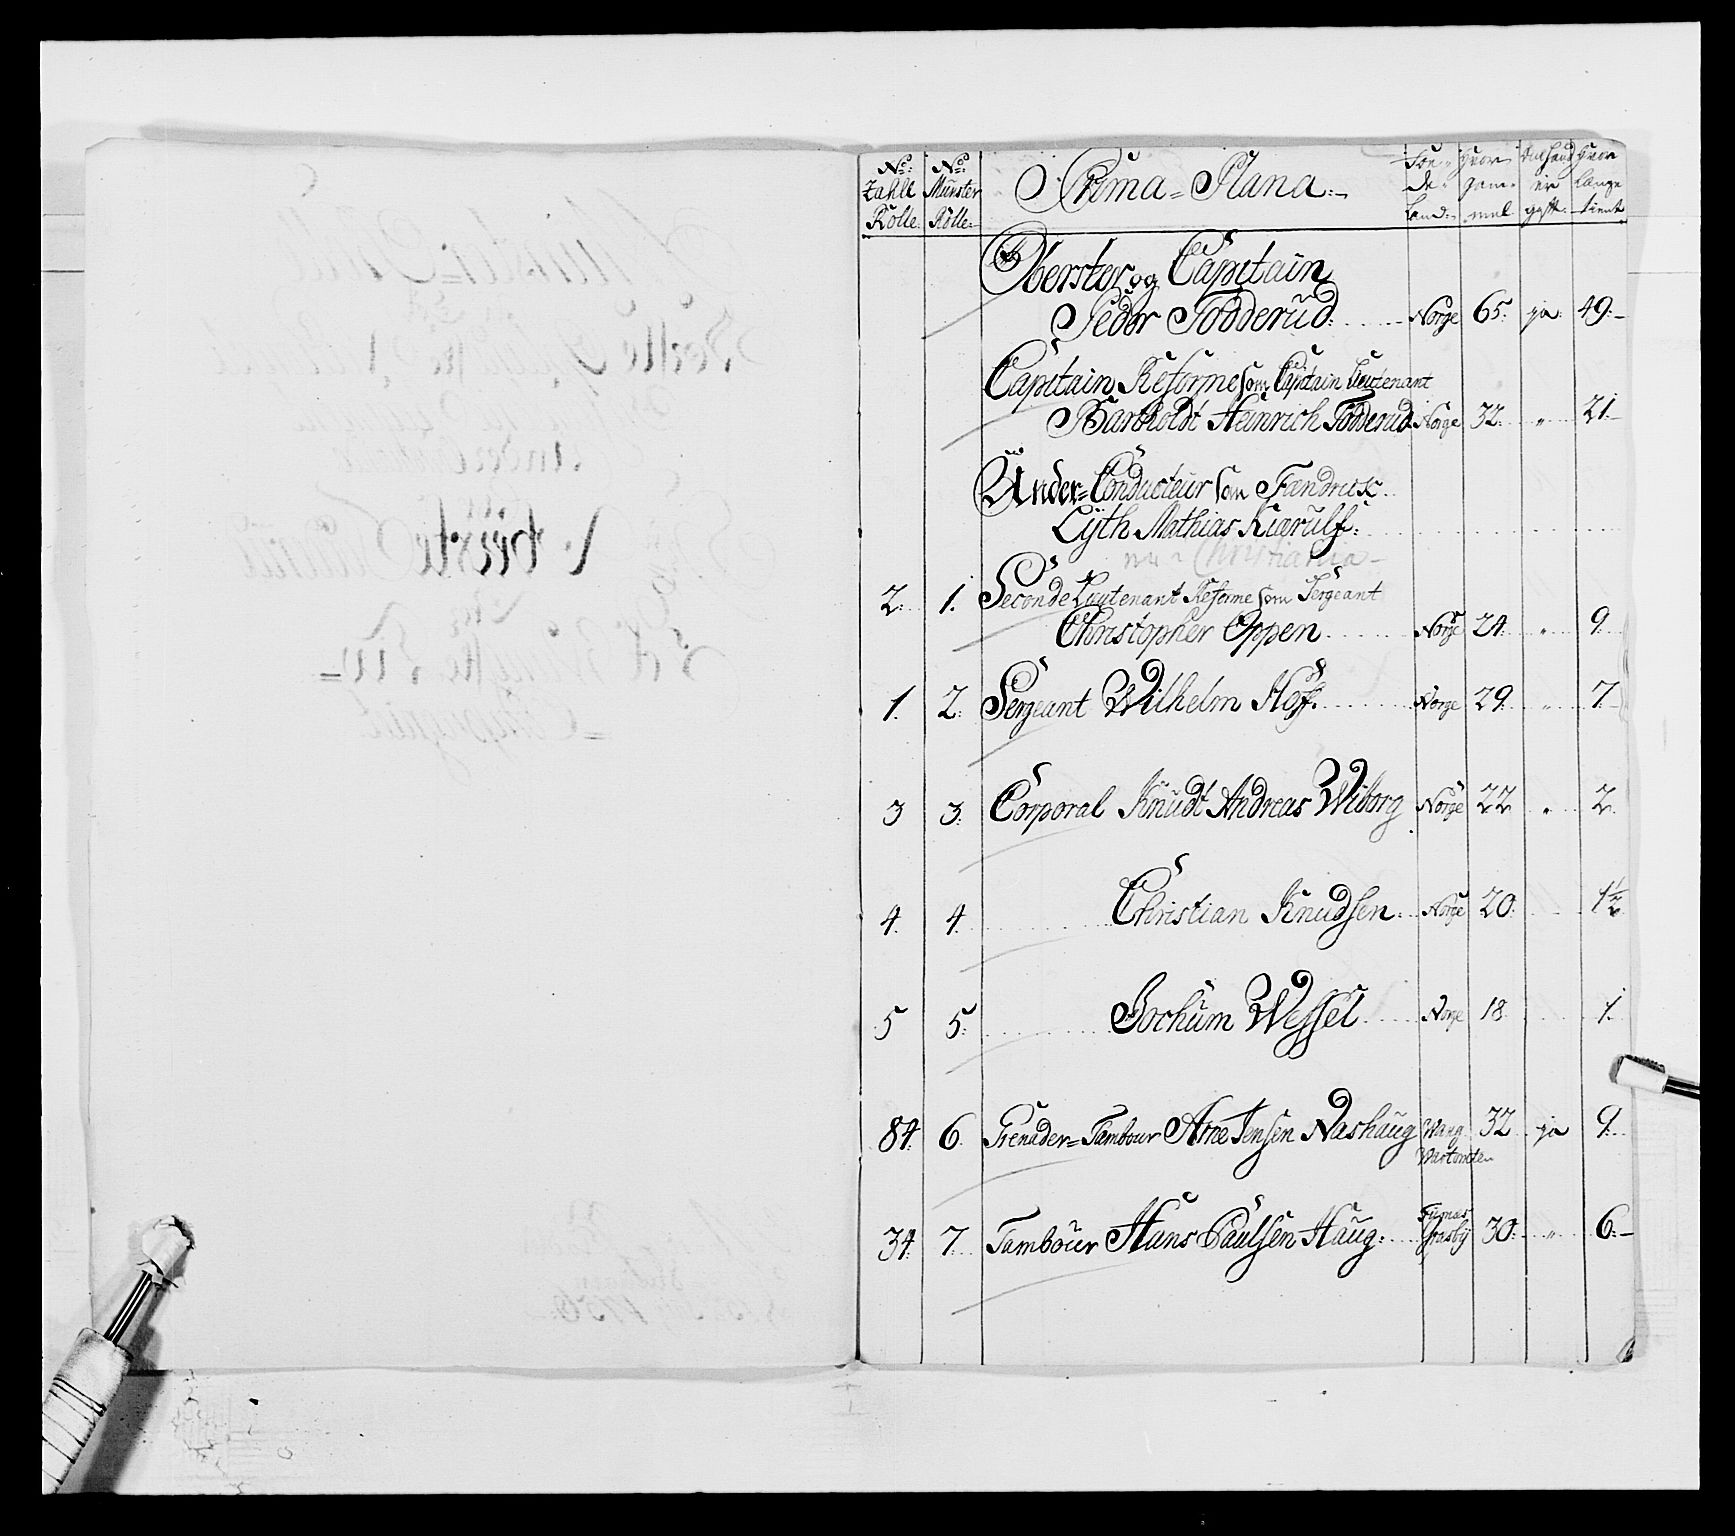 No: Zahle Rolle
No: Munster Rolle:
Prima = Plana:
Föe- de- Land:
Hvor gam- mel
Om hand er gift:
Hvor længe tient
Oberster og Capitain
Peder Todderud: Norge 65: ja: 49:
Capitain Reforme som Capitain Lieutenant
Bartholdt Heinrich Todderud Norge 32: " 21
Under=Conducteur som Fandrick
Lyth Mathias Kiærulf:
nu i Christiania
2: 1. Seconde Lieutenant Reforme som Sergeant
Christopher Oppen Norge 24 " 9
1. 2: Sergeant Wilhelm Hoff Norge 29 " 7
3 3: Corporal Knudt Andreas Wiborg Norge 22 " 2
4 4 Christian Knudsen Norge 20: 1½
5 5: Jochum Wessel Norge 18 1
84 6 Grenader=Tambour Arne Jensen Nashaug Wang 32 ja 9
34 7 Tambour Hans Paulsen Haug: 30: " 6: